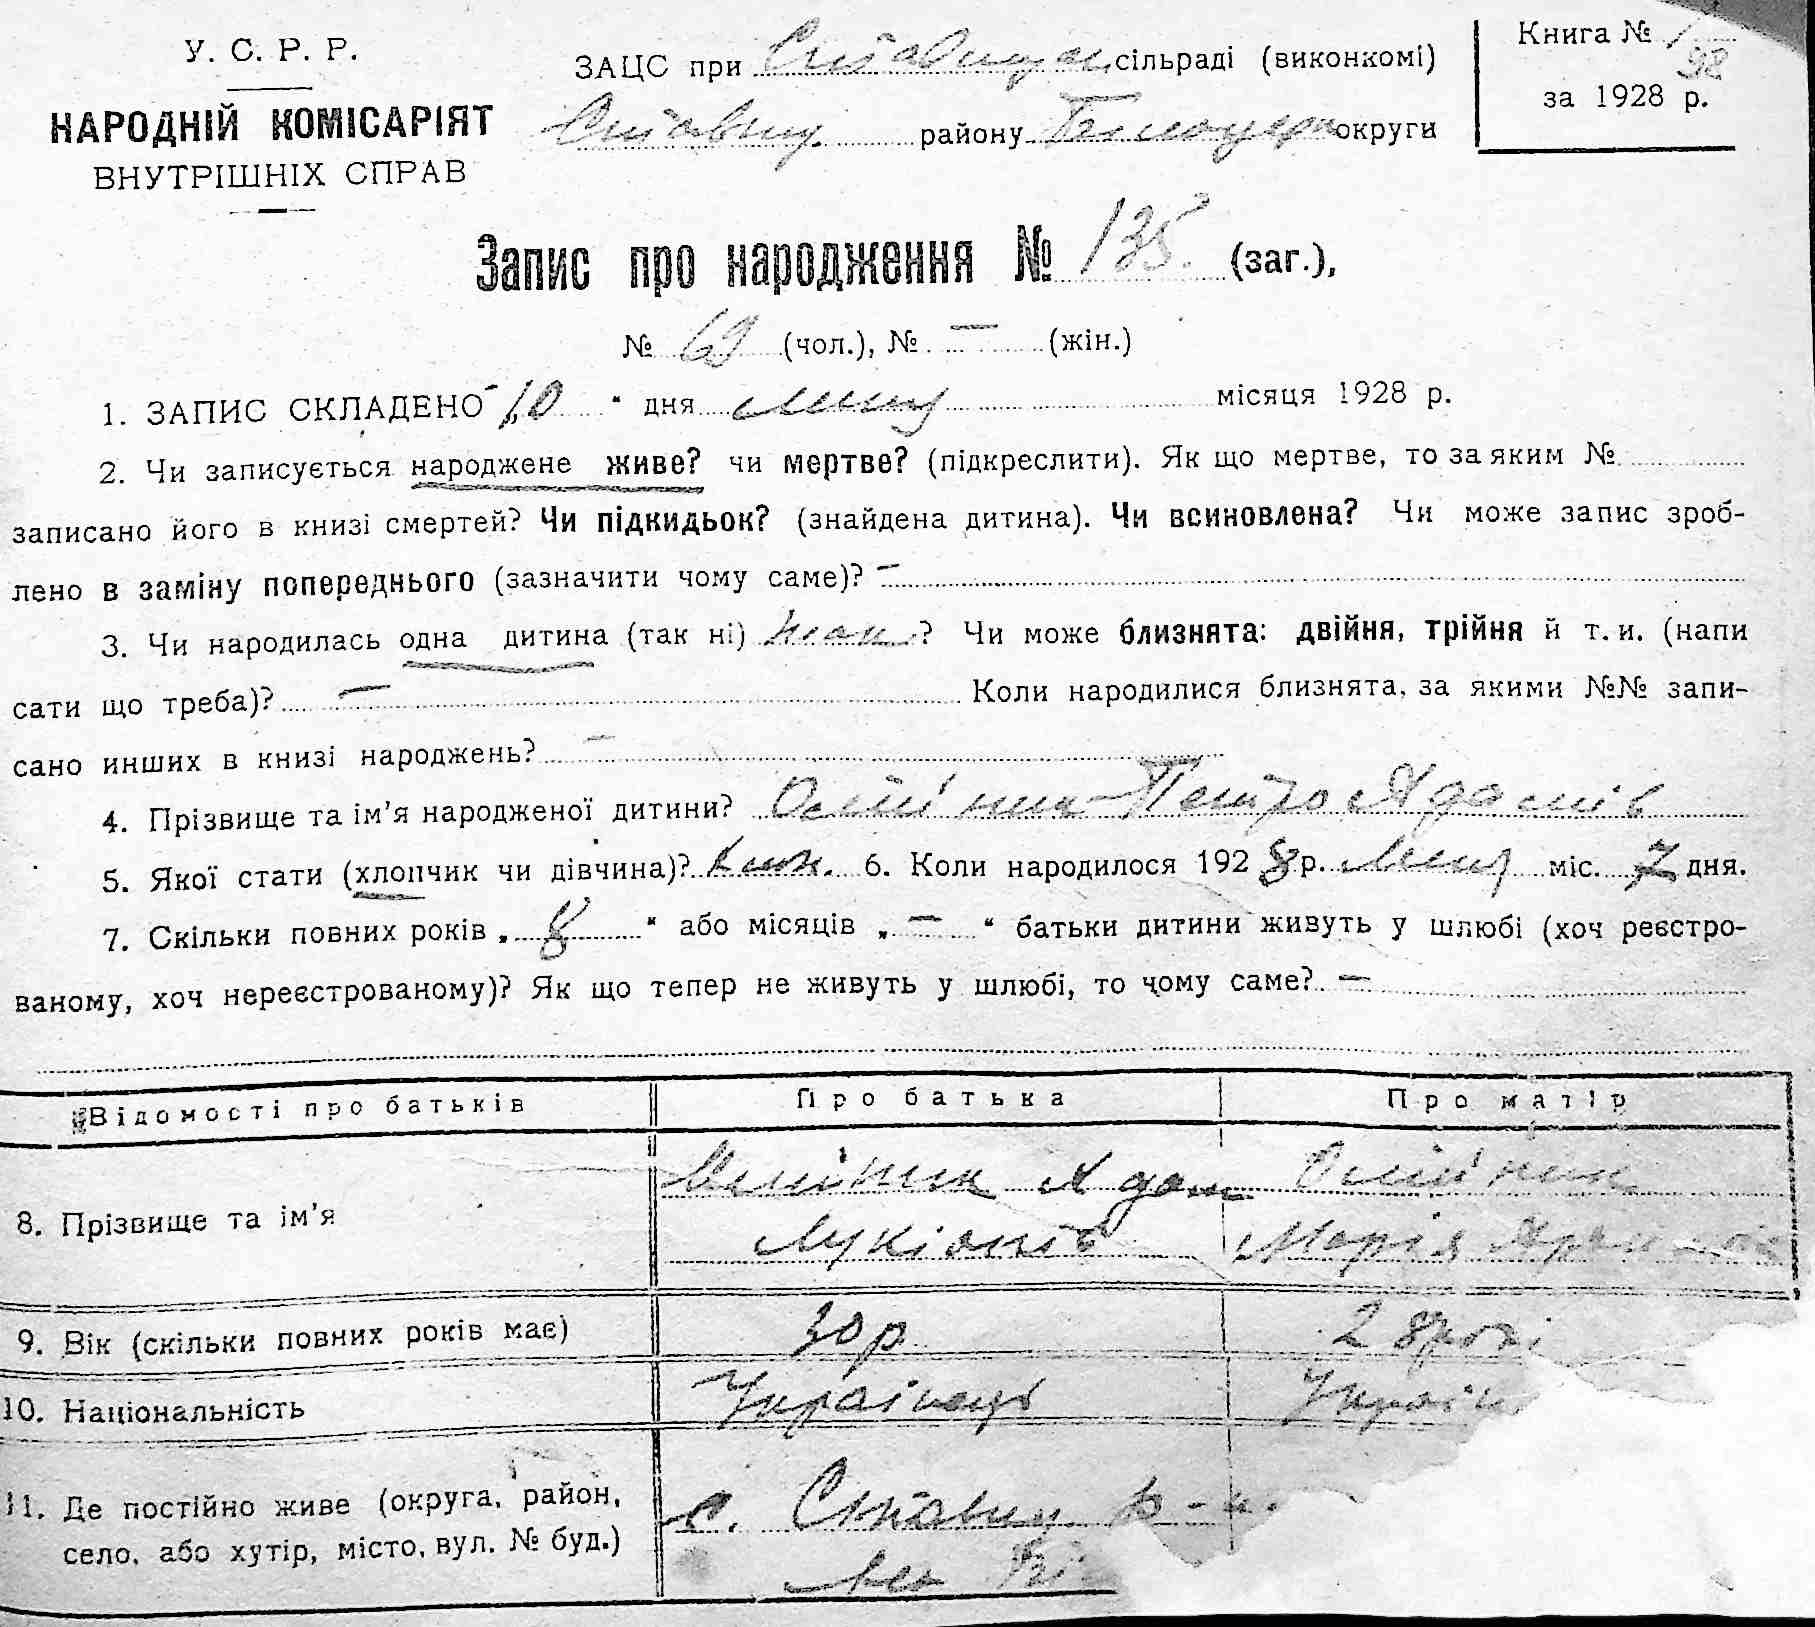 У. С. Р. Р.
НАРОДНІЙ КОМІСАРІЯТ
ВНУТРІШНІХ СПРАВ
ЗАЦС при Ставищан. сільраді (виконкомі)
Ставищ. району Білоцерк округи
Книга № 1
98
за 1928 р.
Запис про народження № 135. (заг.),
№ 69 (чол.), № — (жін.)
1. ЗАПИС СКЛАДЕНО „10 “ дня липця місяця 1928 р.
2. Чи записується народжене живе? чи мертве? (підкреслити). Як що мертве, то за яким №
записано його в книзі смертей? Чи підкидьок? (знайдена дитина). Чи всиновлена? Чи може запис зроб-
лено в заміну попереднього (зазначити чому саме)? —
3. Чи народилась одна дитина (так ні) так ? Чи може близнята: двійня, трійня й т. и. (напи
сати що треба)? — Коли народилися близнята, за якими №№ запи-
сано инших в книзі народжень? —
4. Прізвище та ім’я народженої дитини? Олійник Петро Адамів
5. Якої стати (хлопчик чи дівчина)? хлоп. 6. Коли народилося 1928 р. липця міс. 7 дня.
7. Скільки повних років „ 8 “ або місяців „ — “ батьки дитини живуть у шлюбі (хоч реєстро-
ваному, хоч нереєстрованому)? Як що тепер не живуть у шлюбі, то чому саме? —
Відомості про батьків Про батька Про матір
8. Прізвище та ім’я Олійник Адам Олійник
Лукіянів Марія
9. Вік (скільки повних років має) 30 р 28 рокі
10. Національність Українець Україн
11. Де постійно живе (округа, район, с. Ставищ. р-н.
село, або хутір, місто, вул. № буд.)